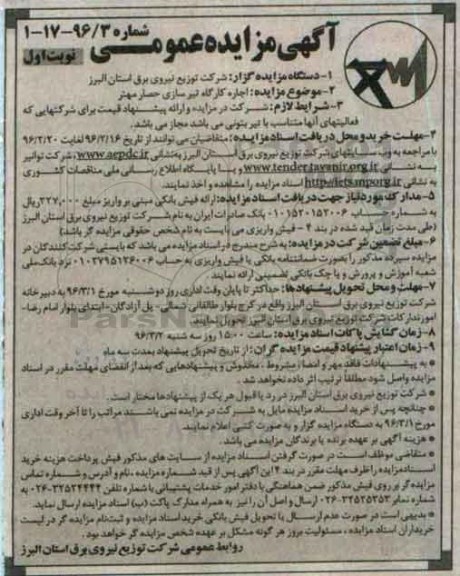 آگهی مزایده عمومی
شماره ۹۶/۳-۱۷-۱
نوبت اول
۱- دستگاه مزایده گزار: شرکت توزیع نیروی برق استان البرز
۲- موضوع مزایده: اجاره کارگاه تیرسازی حصار مهتر
۳- شرایط لازم: شرکت در مزایده و ارائه پیشنهاد قیمت برای شرکتهایی که
فعالیتهای آنها متناسب با تیر بتونی می باشد مجاز می باشد.
۴- مهلت خرید و محل دریافت اسناد مزایده: متقاضیان می توانند از تاریخ ۹۶/۲/۱۶ لغایت ۹۶/۲/۲۰
با مراجعه به وب سایتهای شرکت توزیع نیروی برق استان البرز به نشانی www.aepdc.ir، شرکت توانیر
به نشانی www.tender.tavanir.org.ir و یا پایگاه اطلاع رسانی ملی مناقصات کشوری
به نشانی http://iets.mporg.ir اسناد مزایده را مشاهده و اخذ نمایند.
۵- مدارک مورد نیاز جهت دریافت اسناد مزایده: ارائه فیش بانکی مبنی بر واریز مبلغ ۳۲۷,۰۰۰ ریال
به شماره حساب ۰۱۰۱۵۲۰۱۵۲۰۰۶ بانک صادرات ایران به نام شرکت توزیع نیروی برق استان البرز
(طی مدت زمان قید شده در بند ۴ - فیش واریزی می بایست به نام شخص حقوقی مزایده گر باشد)
۶- مبلغ تضمین شرکت در مزایده: به شرح مندرج در اسناد مزایده می باشد که بایستی شرکت کنندگان در
مزایده سپرده مذکور را بصورت ضمانتنامه بانکی یا فیش واریزی به حساب ۰۱۰۲۷۹۵۱۲۶۰۰۶ نزد بانک ملی
شعبه آموزش و پرورش و یا چک بانکی تضمینی ارائه نمایند.
۷- مهلت و محل تحویل پیشنهادها: حداکثر تا پایان وقت اداری روز دوشنبه مورخ ۹۶/۳/۱ به دبیرخانه
شرکت توزیع نیروی برق استان البرز واقع در کرج بلوار طالقانی شمالی - پل آزادگان - ابتدای بلوار امام رضا -
امور تدارکات شرکت توزیع نیروی برق استان البرز تحویل نمایند.
۸- زمان گشایش پاکات اسناد مزایده: ساعت ۱۵:۰۰ روز سه شنبه ۹۶/۳/۲
۹- زمان اعتبار پیشنهاد قیمت مزایده گران: از تاریخ تحویل پیشنهاد بمدت سه ماه
* به پیشنهادات فاقد مهر و امضاء، مشروط، مخدوش و پیشنهادهایی که بعد از انقضای مهلت مقرر در اسناد
مزایده واصل شود مطلقاً ترتیب اثر داده نخواهد شد.
* شرکت توزیع نیروی برق استان البرز در رد یا قبول هر یک از پیشنهادها مختار است.
* چنانچه پس از خرید اسناد مزایده مایل به شرکت در مزایده نمی باشند مراتب را تا آخر وقت اداری
مورخ ۹۶/۳/۱ به دستگاه مزایده گزار و به صورت کتبی اعلام نمایند.
* هزینه آگهی بر عهده برنده یا برندگان مزایده می باشد.
* متقاضی موظف است در صورت گرفتن اسناد مزایده از سایت های مذکور فیش پرداخت هزینه خرید
اسناد مزایده را ظرف مهلت مقرر در بند ۴ این آگهی پس از قید شماره مزایده، نام و آدرس و شماره تماس
مزایده گر بر روی فیش مذکور ضمن هماهنگی با دفتر امور خدمات پشتیبانی با شماره تلفن ۳۲۵۳۴۴۴۲-۰۲۶ به
شماره نمابر ۳۲۵۲۵۲۵۳-۰۲۶ ارسال و اصل آن را نیز به همراه مدارک پاکت (ب) اسناد مزایده ارسال نماید.
* بدیهی است در صورت عدم ارسال یا تحویل فیش بانکی خرید اسناد مزایده و ثبت نام مزایده گر در لیست
خریداران اسناد مزایده، مسئولیت بروز هر گونه مشکل بر عهده شخص مزایده گر خواهد بود.
روابط عمومی شرکت توزیع نیروی برق استان البرز